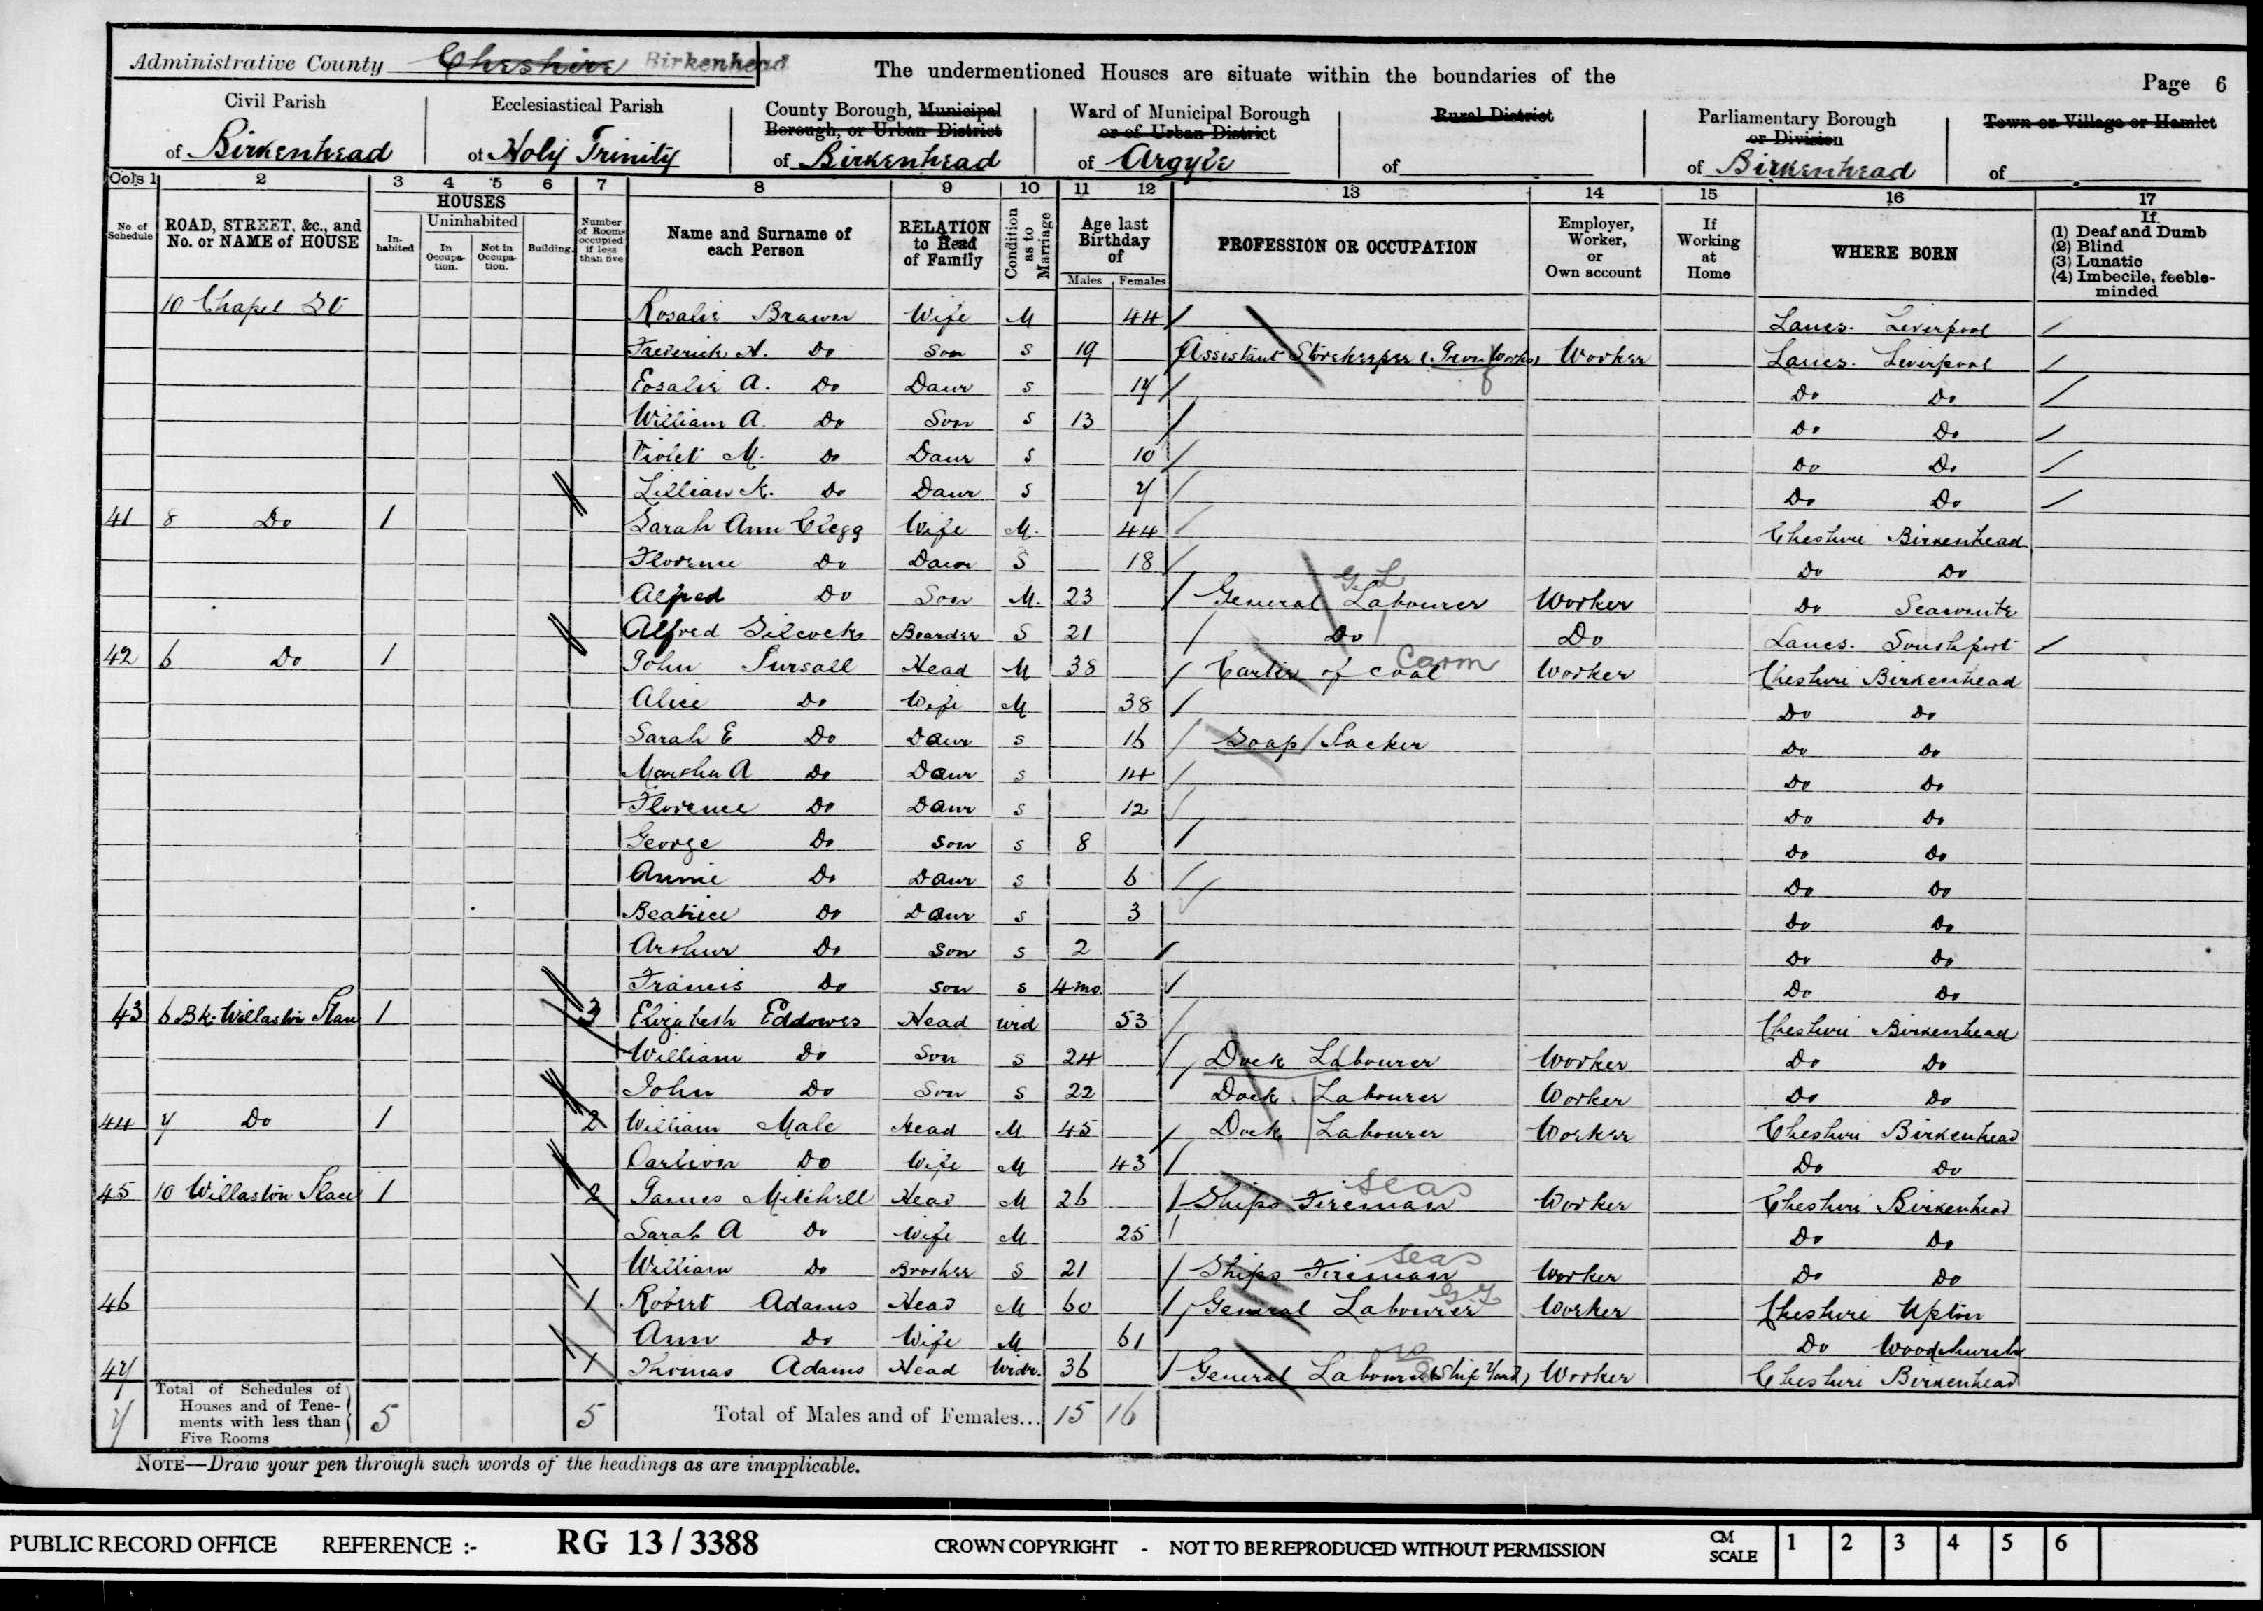 Administrative County Cheshire Birkenhead
The undermentioned Houses are situate within the boundaries of the
Page 6
Civil Parish of Birkenhead
Ecclesiastical Parish of Holy Trinity
County Borough, Municipal Borough, or Urban District of Birkenhead
Ward of Municipal Borough or of Urban District of Argyle
Rural District of
Parliamentary Borough or Division of Birkenhead
Town or Village or Hamlet of
Cols 1 2 3 4 5 6 7 8 9 10 11 12 13 14 15 16 17
No. of Schedule
ROAD, STREET, &c., and No. or NAME of HOUSE
HOUSES
Inhabited
Uninhabited
In Occupation.
Not in Occupation.
Building.
Number of Rooms occupied if less than five
Name and Surname of each Person
RELATION to Head of Family
Condition as to Marriage
Age last Birthday of
Males Females
PROFESSION OR OCCUPATION
Employer, Worker, or Own account
If Working at Home
WHERE BORN
If
(1) Deaf and Dumb
(2) Blind
(3) Lunatic
(4) Imbecile, feeble-minded
10 Chapel St Rosalie Brawer Wife M 44 Lancs. Liverpool
Frederick A. Do Son S 19 Assistant Storekeeper (Iron Works) Worker Lancs. Liverpool
Eosalie A. Do Daur S 17 Do Do
William A. Do Son S 13 Do Do
Violet M. Do Daur S 10 Do Do
Lillian K. Do Daur S 7 Do Do
41 8 Do 1 Sarah Ann Clegg Wife M. 44 Cheshire Birkenhead
Florence Do Daur S 18 Do Do
Alfred Do Son M. 23 General Labourer G L Worker Do Seacombe
Alfred Silcock Boarder S 21 Do Do Lancs. Southport
42 6 Do 1 John Pursall Head M 38 Carter of Coal Carm Worker Cheshire Birkenhead
Alice Do Wife M 38 Do Do
Sarah E Do Daur S 16 Soap Packer Do Do
Martha A Do Daur S 14 Do Do
Florence Do Daur S 12 Do Do
George Do Son S 8 Do Do
Annie Do Daur S 6 Do Do
Beatrice Do Daur S 3 Do Do
Arthur Do Son S 2 Do Do
Francis Do Son S 4 mo Do Do
43 6 Bk. Willaston Place 1 3 Elizabeth Eddowes Head Wid 53 Cheshire Birkenhead
William Do Son S 24 Dock Labourer Worker Do Do
John Do Son S 22 Dock Labourer Worker Do Do
44 7 Do 1 2 William Male Head M 45 Dock Labourer Worker Cheshire Birkenhead
Do Wife M 43 Do Do
45 10 Willaston Place 1 2 James Mitchell Head M 26 Ships Fireman seas Worker Cheshire Birkenhead
Sarah A Do Wife M 25 Do Do
William Do Brother S 21 Ships Fireman seas Worker Do Do
46 1 Robert Adams Head M 60 General Labourer Worker Cheshire Upton
Ann Do Wife M 61 Do Woodchurch
47 1 Thomas Adams Head Widr. 36 General Labourer (Ship Yard) Worker Cheshire Birkenhead
7 Total of Schedules of Houses and of Tenements with less than Five Rooms 5 5 Total of Males and of Females... 15 16
NOTE—Draw your pen through such words of the headings as are inapplicable.
PUBLIC RECORD OFFICE REFERENCE :- RG 13 / 3388 CROWN COPYRIGHT - NOT TO BE REPRODUCED WITHOUT PERMISSION CM SCALE 1 2 3 4 5 6